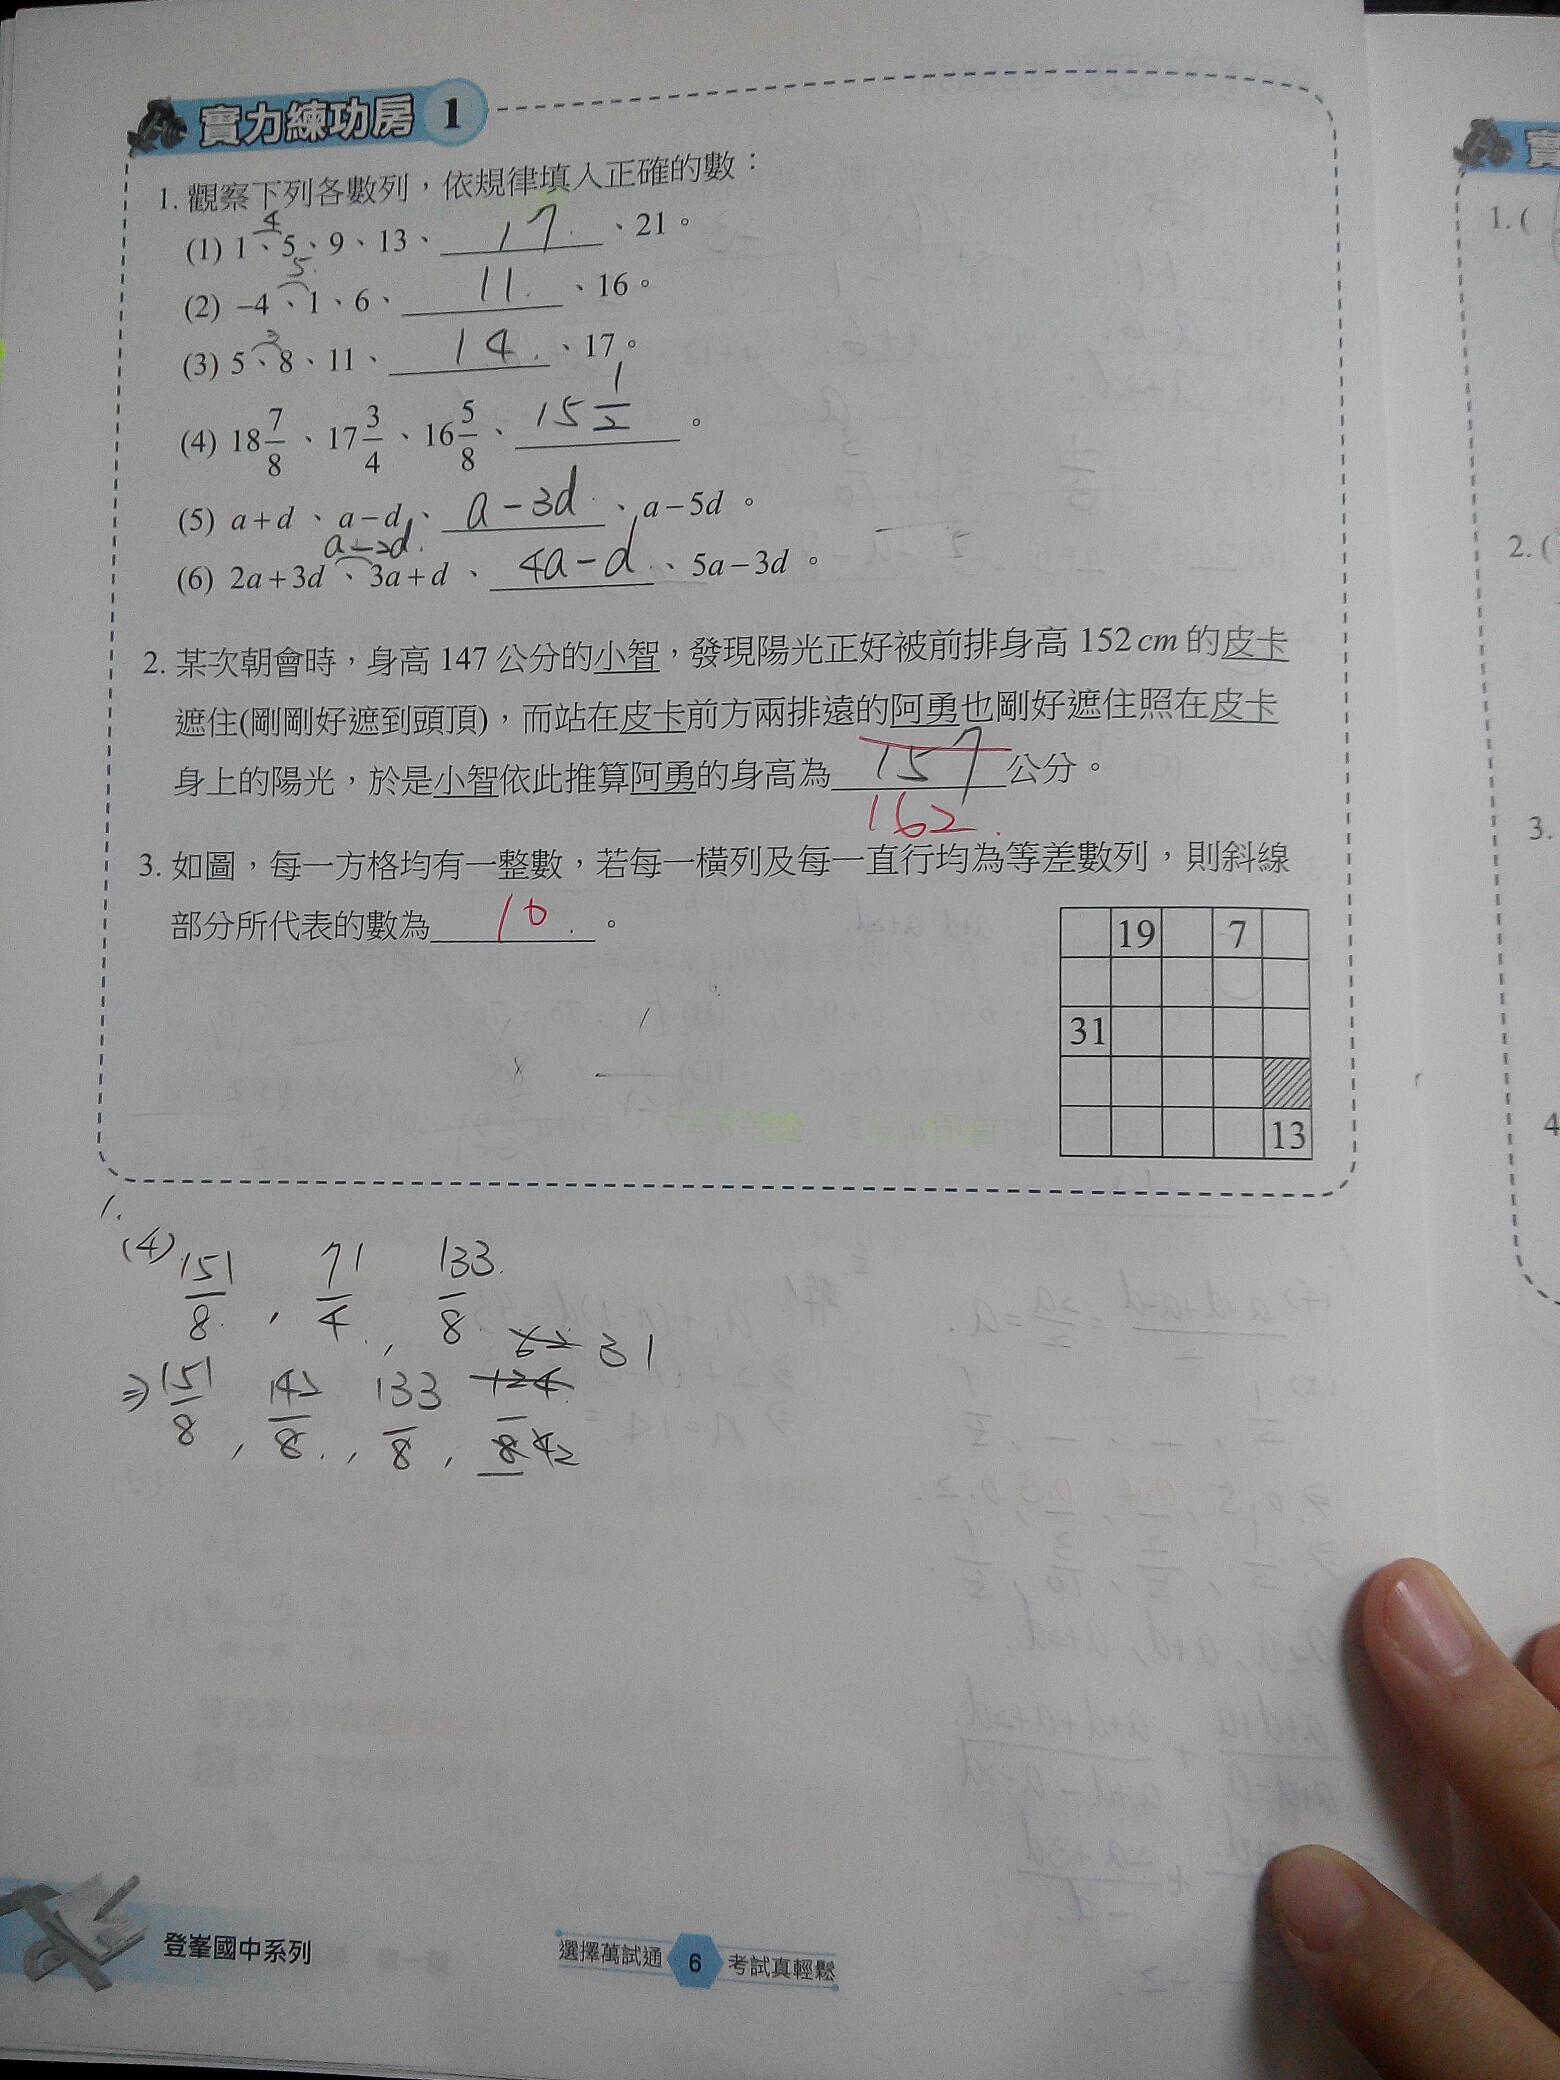 實力練功房 1
1. 觀察下列各數列,依規律填入正確的數:
4
(1) 1、5、9、13、 17. 、21。
5.
(2) –4、1、6、 11. 、16。
3
(3) 5、8、11、 14. 、17。
(4) 18 7/8、17 3/4、16 5/8、 15 1/2 。
(5) a+d、a−d、 a−3d. 、a−5d。
a−2d.
(6) 2a+3d、3a+d、 4a−d. 、5a−3d。
2. 某次朝會時,身高 147 公分的小智,發現陽光正好被前排身高 152 cm 的皮卡
遮住(剛剛好遮到頭頂),而站在皮卡前方兩排遠的阿勇也剛好遮住照在皮卡
身上的陽光,於是小智依此推算阿勇的身高為 157 公分。
162.
3. 如圖,每一方格均有一整數,若每一橫列及每一直行均為等差數列,則斜線
部分所代表的數為 10. 。
19 7
31
13
1.
(4) 151/8, 71/4, 133/8
62 31
⇒ 151/8, 142/8, 133/8, 124/8 42
登峯國中系列
選擇萬試通 6 考試真輕鬆
1. (
2. (
3.
4